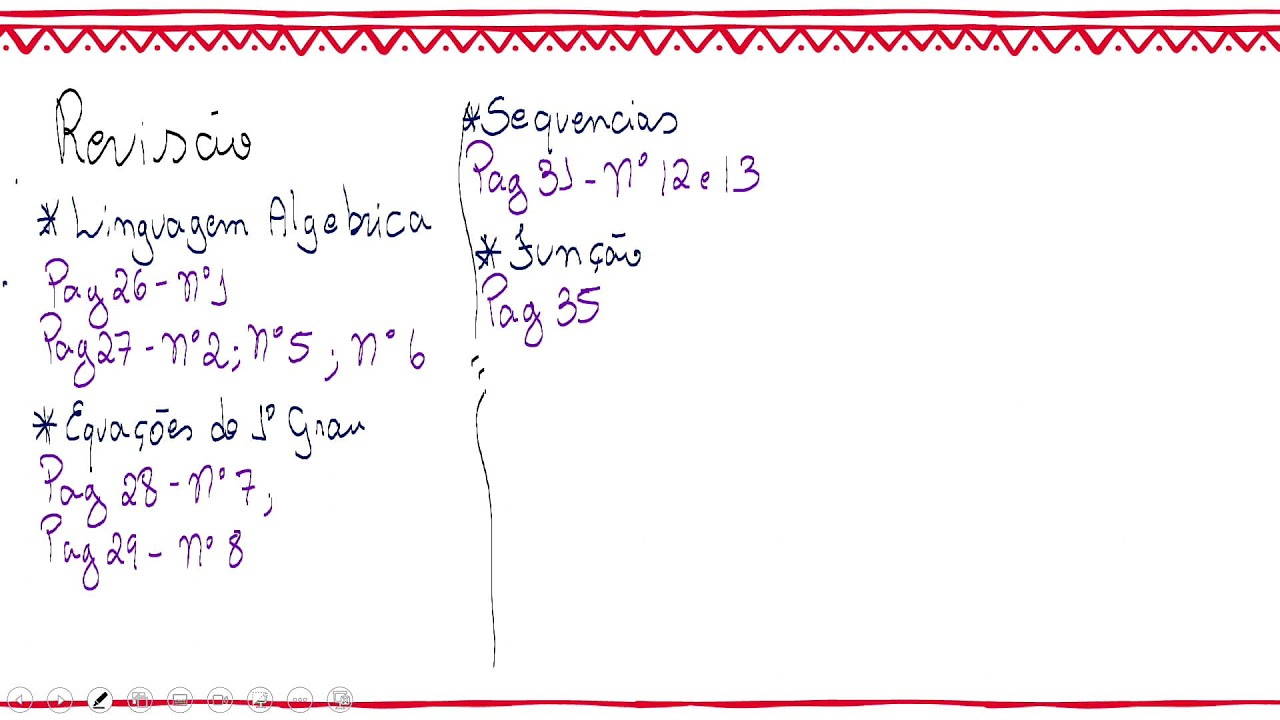 Revisão
* Linguagem Algebrica
Pag 26 - nº 1
Pag 27 - nº 2; nº 5; nº 6
* Equações do 1º Grau
Pag 28 - nº 7;
Pag 29 - nº 8
* Sequencias
Pag 31 - nº 12 e 13
* Função
Pag 35